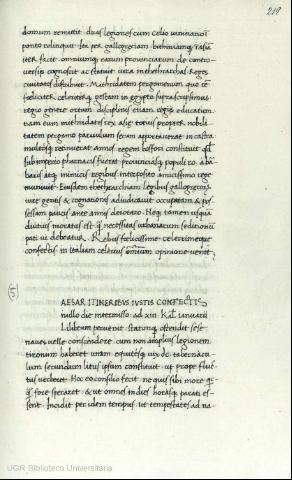 219
domum remittit. duas legiones cum Celio vinitiano in
ponto relinquit. Ita per gallogreciam bithiniamque in asiam
iter facit. omniumque earum provinciarum de contro
versiis cognoscit ac statuit. iura in thetrarchas Reges
civitates distribuit. Mithridatem pergamenum a quo rem
feliciter celeriterque gestam in egypto supra scripsimus
regio genere ortum disciplinis etiam regiis educatum
nam eum mithridates rex asie totius propter nobili
tatem pergamo parvulum secum asportaverat in castra
multosque retinuerat annos. regem bosfori constituit qui
sub imperio pharnacis fuerat provinciasque populi ro. a bar
baris atque inimicis regibus interposito amicissimo rege
munivit. Eiusdem thetrarchiam legibus gallogrecorum
iure gentis & cognationis adiudicavit occupatam & pos
sessam paucis ante annis a deiotaro. Neque tamen usquam
diutius moratus est quam necessitas urbanarum seditionum
pati videbatur. Rebus felicissime celerrimeque
confectis in italiam celerius omnium opinione venit.
(5)
AESAR ITINERIBUS IUSTIS CONFECTIS
nullo die intermisso. ad XIII. Kal. Ianuarii
Lilibeum pervenit statimque ostendit sese
naves velle conscendere. cum non amplius legionem
tironum haberet unam equitesque vix dc. tabernacu
lum secundum litus ipsum constituit ut prope fluc
tus verberet. Hoc eo consilio fecit ne quis sibi more quic
quam fore speraret. & ut omnes in dies horasque parati es
sent. Incidit per idem tempus ut tempestates ad na
UGR Biblioteca Universitaria